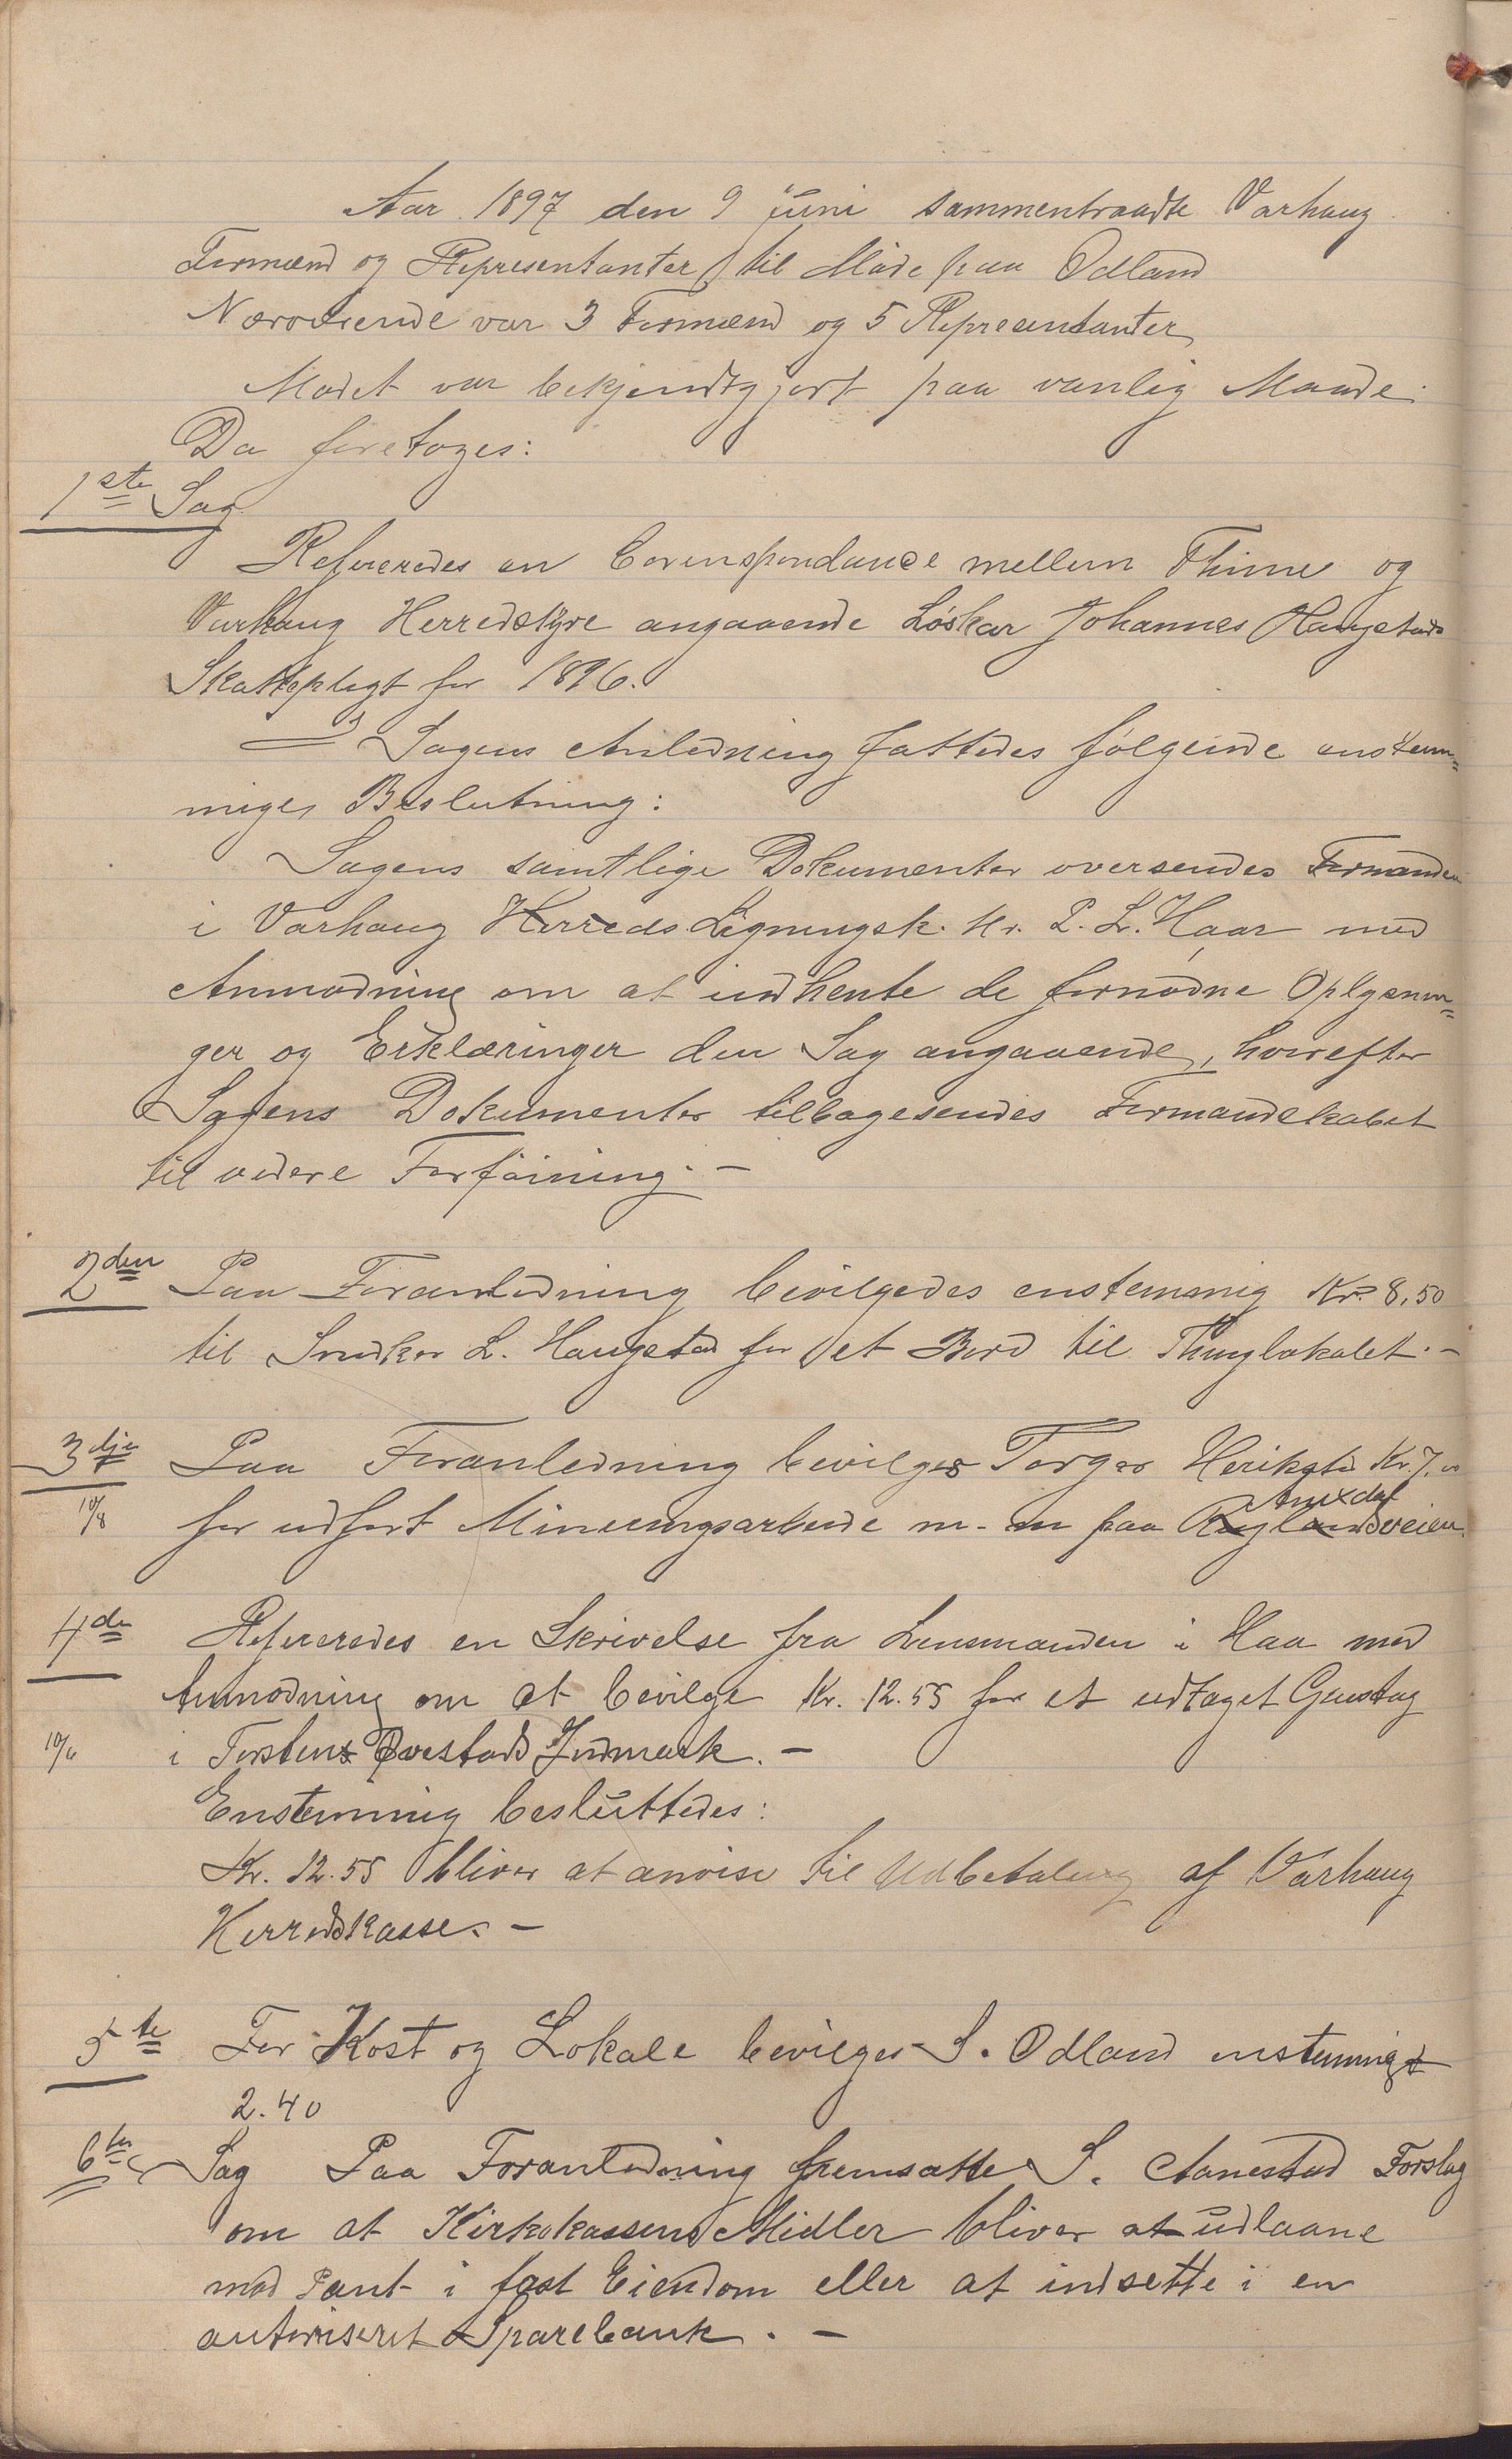 Aar 1897 den 9 juni sammentraadte Varhaug
Formænd og Representanter til Møde paa Odland
Nærværende var 3 Formænd og 5 Representanter
Mødet var bekjendtgjort paa vanlig Maade.
Da foretoges:
1ste Sag
Refereredes en Correnspondance mellem Thime og
Varhaug Herredstyre angaaende Løskar Johannes Haugstads
Skattepligt for 1896.
I Sagens Anledning fattedes følgende enstem=
mige Beslutning:
Sagens samtlige Dokumenter oversendes Formanden
i Varhaug Herreds Ligningsk. Hr. P. L. Haar med
Anmodning om at indhente de fornødne Oplysnin=
ger og Erklæringer den Sag angaaende, hvorefter
Sagens Dokumenter tilbagesendes Formandskabet
til videre Forføining. -
2den Paa Foranledning bevilgedes enstemmig Kr. 8,50
til Snedker L. Haugstad for et Bord til Thinglokalet. -
3dje Paa Foranledning bevilges Torger Herikstad Kr. 7.
10/8 for udført Mineringsarbeide m. m paa Ruglandsveien
4de Refereredes en Skrivelse fra Lensmanden i Haa med
Anmodning om at bevilge Kr. 12.55 for et udtaget Grustag
10/6 i Torstens Øvestads Indmark. -
Enstemmig besluttedes:
Kr. 12.55 bliver at anvise til Udbetaling af Varhaug
Herredskasse. -
5te For Kost og Lokale bevilges S. Odland enstemmigt
2.40
6te Sag Paa Foranledning fremsatte S. Aanestad Forslag
om at Kirkekassens Midler bliver at udlaane
mod Pant i fast Eiendom eller at indsette i en
autoriseret Sparebank. -